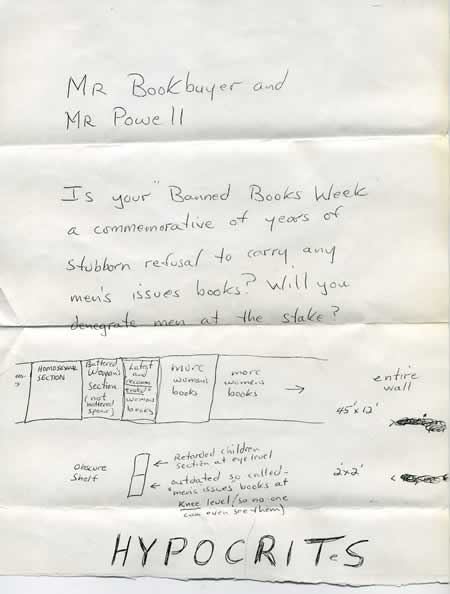 MR Bookbuyer and
MR Powell
Is your "Banned Books Week"
a commemorative of years of
stubborn refusal to carry any
men's issues books? Will you
denegrate men at the stake?
HOMOSEXUAL
SECTION
Battered
Women's
Section
(not battered
spouse)
Latest
and
women's
books
more
womens
books
more
womens
books
entire
wall
45'x12'
Obscure
Shelf
Retarded children
section at eye level
outdated so called
"mens issues" books at
Knee level (so no one
can even see them)
2'x2'
HYPOCRITeS